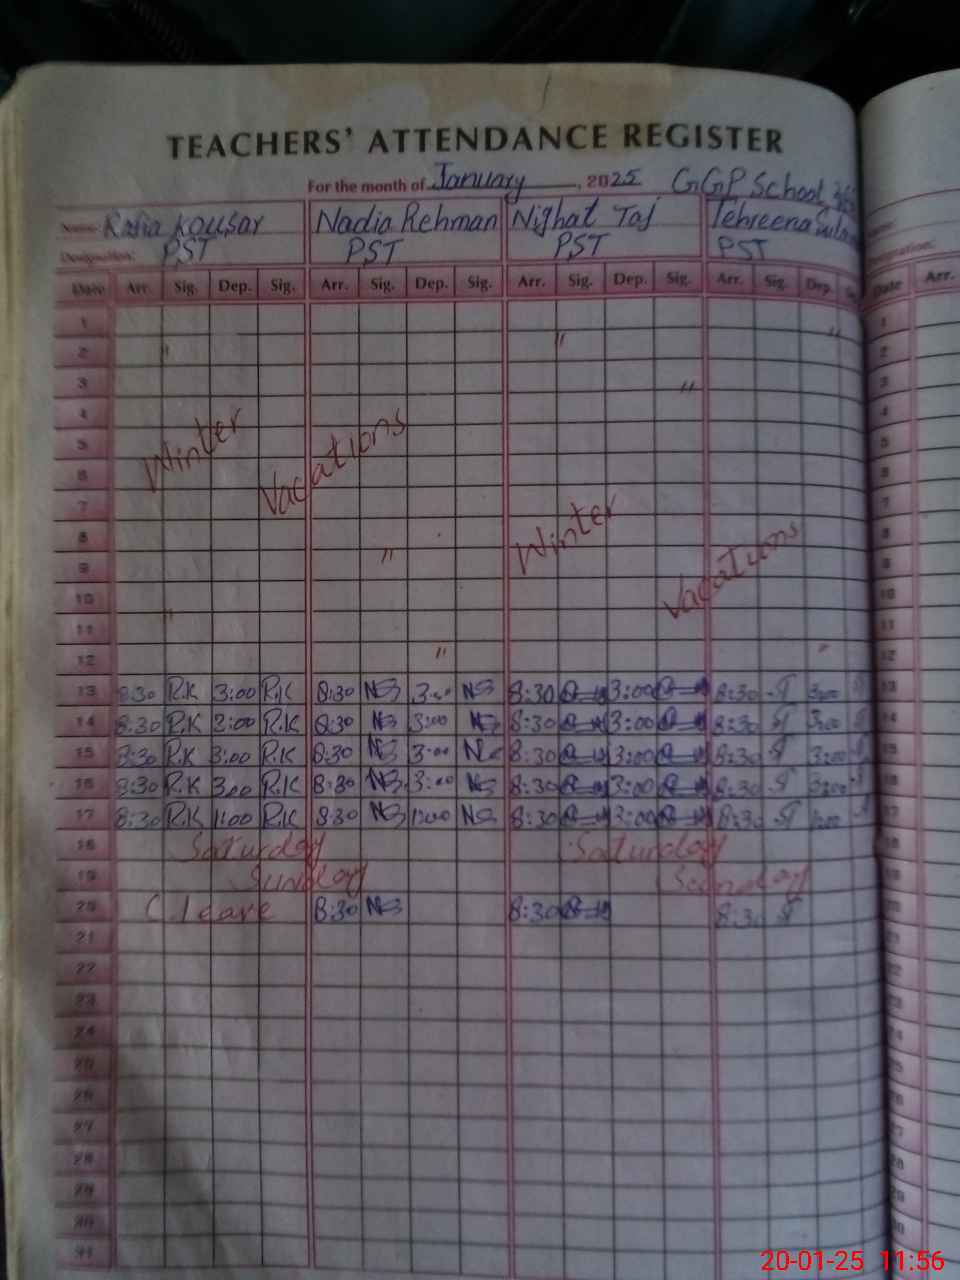 TEACHERS' ATTENDANCE REGISTER
For the month of January, 2025 GGP School
Name: Rafia Kousar Nadia Rehman Nighat Taj Tehreena
Designation: PST PST PST PST
Date Arr. Sig. Dep. Sig. Arr. Sig. Dep. Sig. Arr. Sig. Dep. Sig. Arr. Sig. Dep. Date Arr.
1 " 1
2 " " 2
3 " 3
4 4
5 5
6 Winter Vacations 6
7 7
8 Winter 8
9 " Vacations 9
10 10
11 " 11
12 " " 12
13 8:30 R.K 3:00 R.K 8:30 NS 3:00 NS 8:30 3:00 8:30 3:00 13
14 8:30 R.K 3:00 R.K 8:30 NS 3:00 NS 8:30 3:00 8:30 3:00 14
15 8:30 R.K 3:00 R.K 8:30 NS 3:00 NS 8:30 3:00 8:30 3:00 15
16 8:30 R.K 3:00 R.K 8:30 NS 3:00 NS 8:30 3:00 8:30 3:00 16
17 8:30 R.K 1:00 R.K 8:30 NS 1:00 NS 8:30 3:00 8:30 17
18 Saturday Saturday 18
19 Sunday Sunday 19
20 ( leave 8:30 NS 8:30 8:30 20
21 21
22 22
23 23
24 24
25 25
26 26
27 27
28 28
29 29
30 30
31
20-01-25 11:56